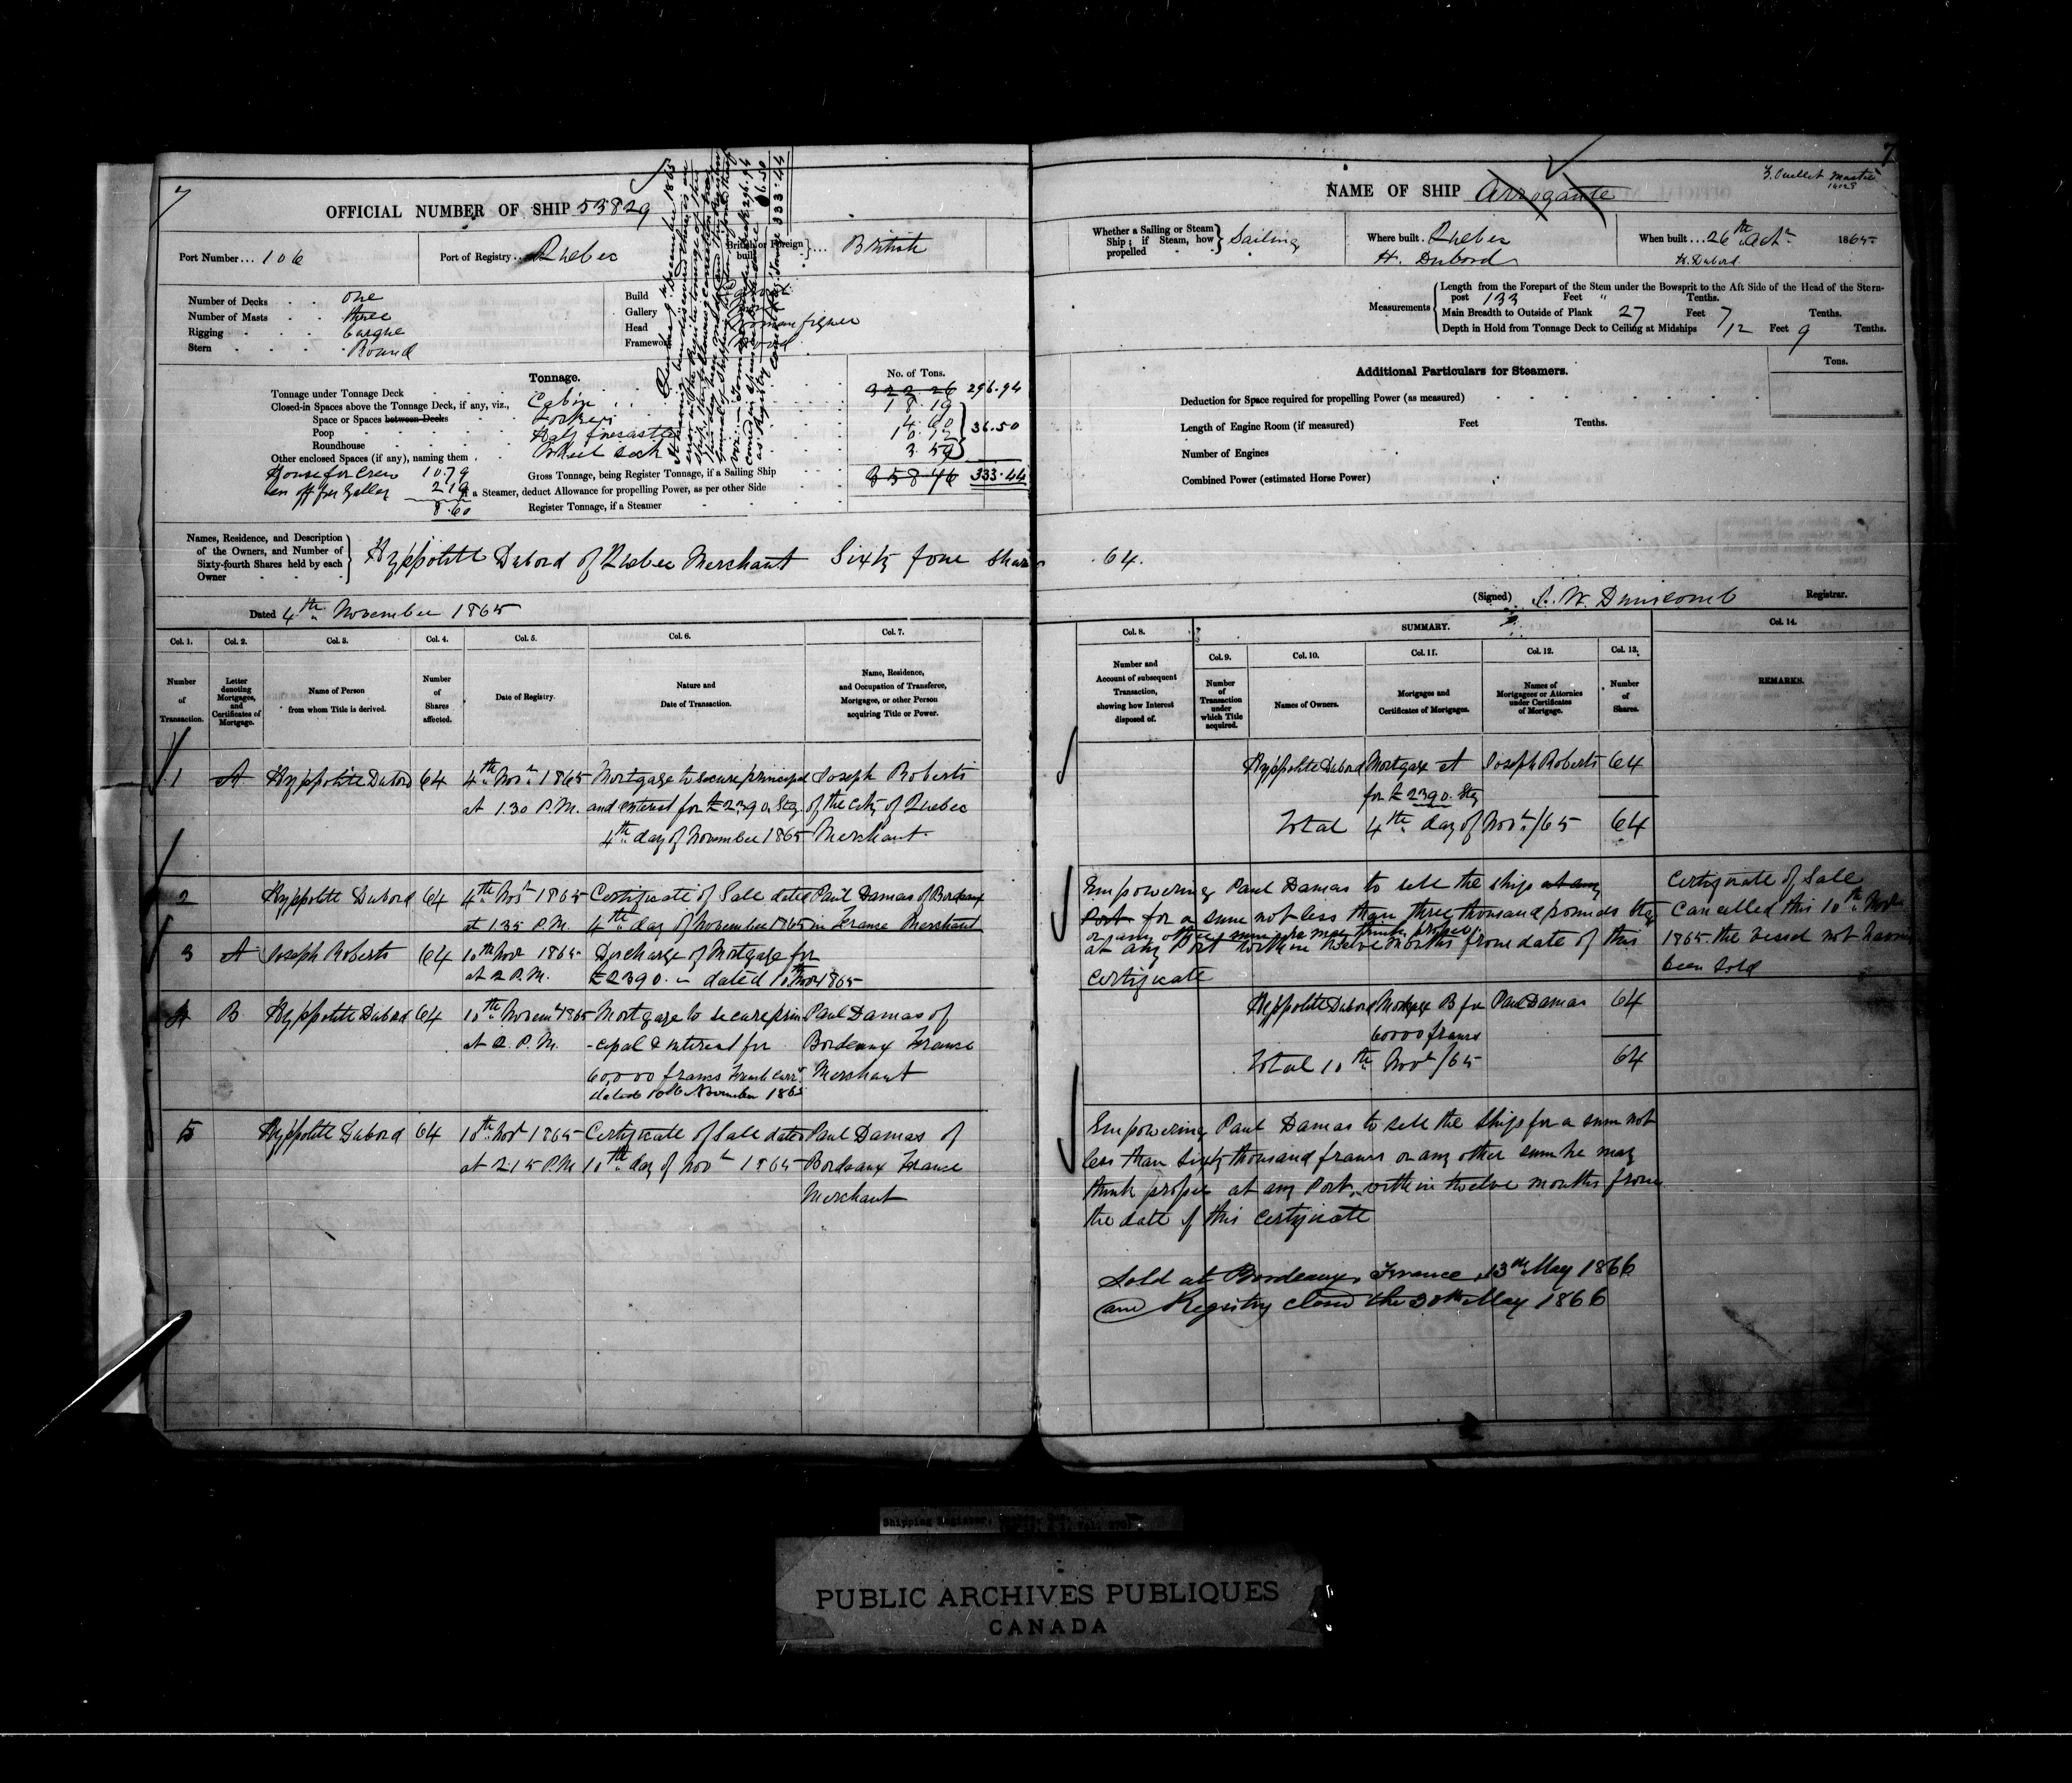 7
OFFICIAL NUMBER OF SHIP 53829
Port Number... 106
Port of Registry... Quebec
British or Foreign built ... British
Number of Decks one
Number of Masts three
Rigging barque
Stern Round
Build
Gallery
Head Woman figure
Framework Wood
Tonnage.
No. of Tons.
Tonnage under Tonnage Deck 322 26 296.94
Closed-in Spaces above the Tonnage Deck, if any, viz., Cabin 18.19
Space or Spaces between Decks Lockers 4 60
Poop Half forecastle 10.12 36.50
Roundhouse Wheel 3.59
Other enclosed Spaces (if any), naming them
House for Crew 10.79
Gross Tonnage, being Register Tonnage, if a Sailing Ship 358 46 333.44
off for Galley 2 19
a Steamer, deduct Allowance for propelling Power, as per other Side
8.60
Register Tonnage, if a Steamer
Names, Residence, and Description of the Owners, and Number of Sixty-fourth Shares held by each Owner
Hyppolite Dubord of Quebec Merchant Sixty four Shares 64.
Dated 4th November 1865
Col. 1. Col. 2. Col. 3. Col. 4. Col. 5. Col. 6. Col. 7.
Number of Transaction.
Letter denoting Mortgages, and Certificates of Mortgage.
Name of Person from whom Title is derived.
Number of Shares affected.
Date of Registry.
Nature and Date of Transaction.
Name, Residence, and Occupation of Transferee, Mortgagee, or other Person acquiring Title or Power.
1 A Hyppolite Dubord 64 4th Novr 1865 Mortgage to secure principal Joseph Roberts
at 1.30 P.M. and interest for £2390 Stg of the city of Quebec
4th day of November 1865 Merchant
2 Hyppolite Dubord 64 4th Novr 1865 Certificate of Sale dated Paul Damas of Bordeaux
at 1 35 P.M. 4th day of November 1865 in France Merchant
3 A Joseph Roberts 64 10th Novr 1865 Discharge of Mortgage for
at 2 P.M. £2390. dated 10th Nov 1865
4 B Hyppolite Dubord 64 10th Novemr 1865 Mortgage to secure prin Paul Damas of
at 2. P.M. -cipal & interest for Bordeaux France
60,000 francs French curr. Merchant
dated 10th November 1865
5 Hyppolite Dubord 64 10th Novr 1865 Certificate of Sale dated Paul Damas of
at 2 15 P.M. 10th day of Novr 1865 Bordeaux France
Merchant
7
NAME OF SHIP Arrogante
Z. Ouellet Master
Whether a Sailing or Steam Ship; if Steam, how propelled Sailing
Where built. Quebec
H. Dubord
When built ... 26th Octr 1865
H. Dubord
Measurements
Length from the Forepart of the Stem under the Bowsprit to the Aft Side of the Head of the Stern-
post 133 Feet " Tenths.
Main Breadth to Outside of Plank 27 Feet 7 Tenths.
Depth in Hold from Tonnage Deck to Ceiling at Midships 12 Feet 9 Tenths.
Additional Particulars for Steamers.
Tons.
Deduction for Space required for propelling Power (as measured)
Length of Engine Room (if measured) Feet Tenths.
Number of Engines
Combined Power (estimated Horse Power)
(Signed) J. W. Dunscomb Registrar.
Col. 8. SUMMARY. Col. 14.
Col. 9. Col. 10. Col. 11. Col. 12. Col. 13.
Number and Account of subsequent Transaction, showing how Interest disposed of.
Number of Transaction under which Title acquired.
Names of Owners.
Mortgages and Certificates of Mortgages.
Names of Mortgagees or Attornies under Certificates of Mortgage.
Number of Shares.
REMARKS.
Hyppolite Dubord Mortgage A Joseph Roberts 64
for £2390. Stg
Total 4th day of Novr/65 64
Empowering Paul Damas to sell the ship at any
Port for a sum not less than three thousand pounds Stg
or any other sum he may think proper
at any Port within twelve months from date of this
Certificate
Certificate of Sale
Cancelled this 10th Novr
1865 the vessel not having
been sold
Hyppolite Dubord Mortgage B for Paul Damas 64
60000 francs
Total 10th Novr/65 64
Empowering Paul Damas to sell the Ship for a sum not
less than Sixty thousand francs or any other sum he may
think proper at any Port, within twelve months from
the date of this Certificate
Sold at Bordeaux, France, 13th May 1866
and Registry closed the 30th May 1866
PUBLIC ARCHIVES PUBLIQUES
CANADA